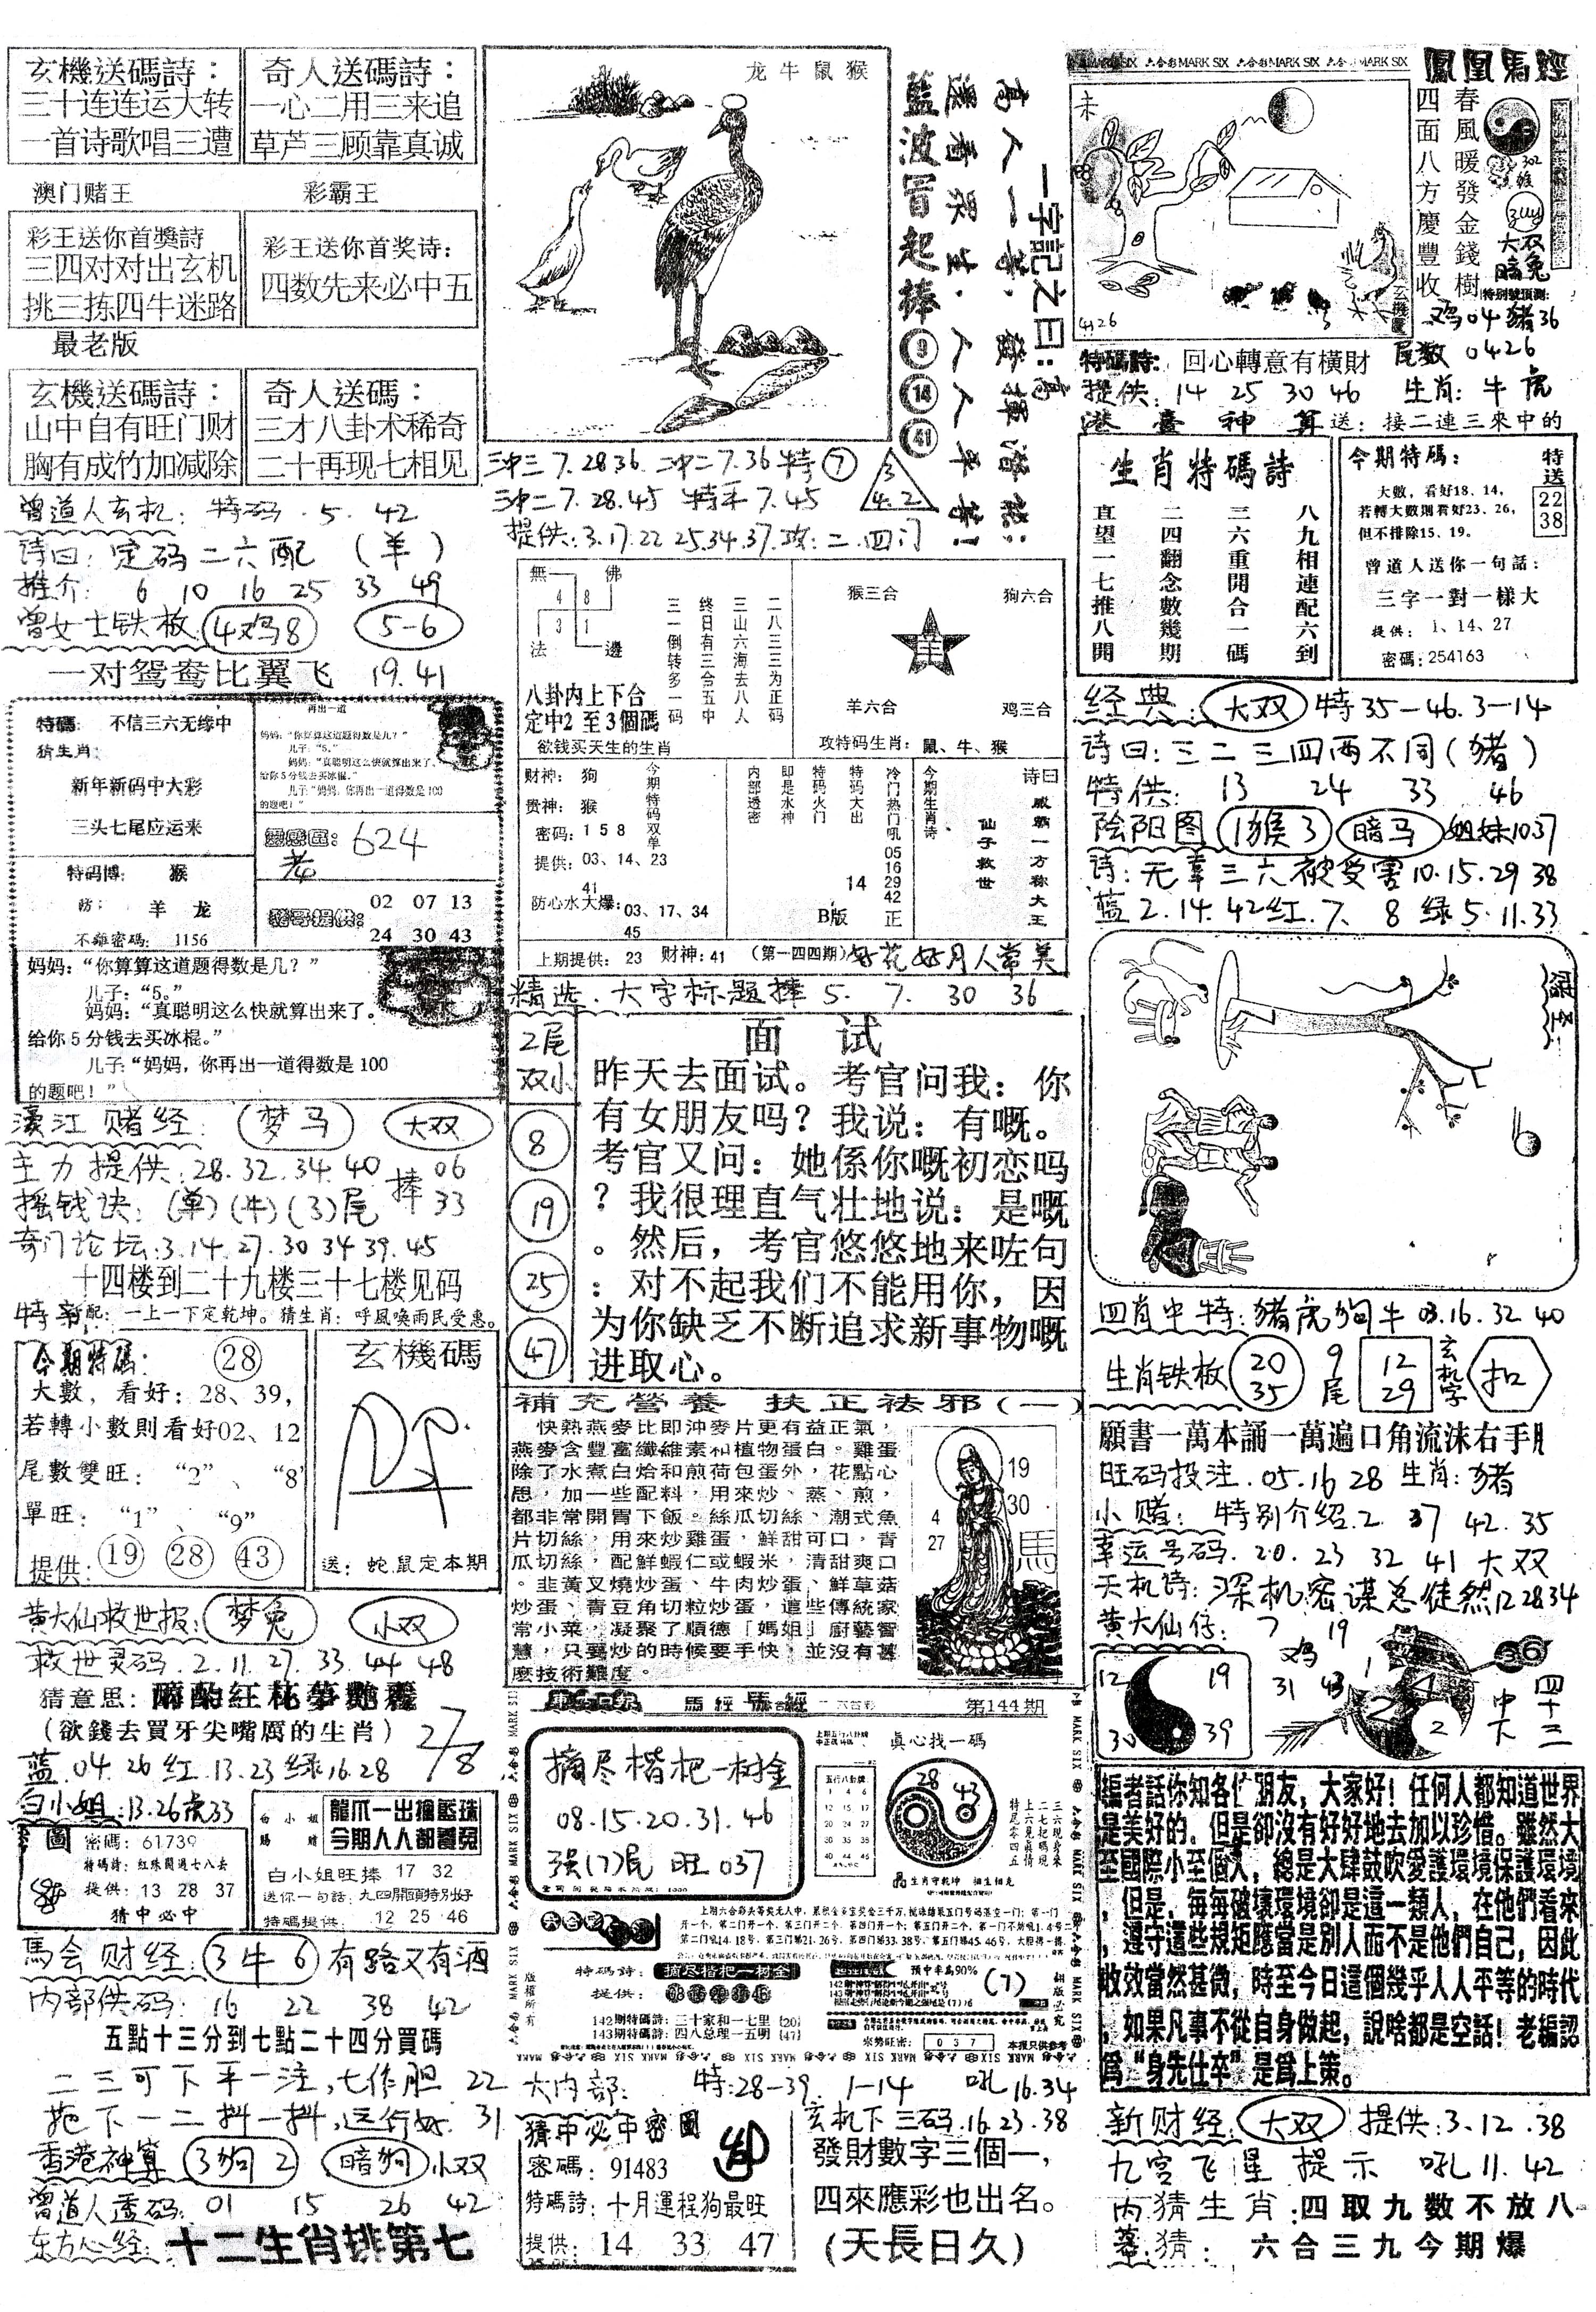 玄機送碼詩：
三十连连运大转
一首诗歌唱三遭
奇人送碼詩：
一心二用三来追
草芦三顾靠真诚
澳门赌王
彩霸王
彩王送你首獎詩
三四对对出玄机
挑三拣四牛迷路
彩王送你首奖诗：
四数先来必中五
最老版
玄機送碼詩：
山中自有旺门财
胸有成竹加减除
奇人送碼：
三才八卦术稀奇
二十再现七相见
曾道人玄机：特码.5.42
诗曰：定码二六配（羊）
推介：6 10 16 25 33 49
曾女士铁板 4鸡8 5-6
一对鸳鸯比翼飞 19.41
特碼：不信三六无缘中
猜生肖：
新年新码中大彩
三头七尾应运来
特码博：猴
防：羊 龙
不離密碼：1156
再出一道
妈妈：“你算算这道题得数是几？”
儿子：“5。”
妈妈：“真聪明这么快就算出来了。
给你5分钱去买冰棍。”
儿子“妈妈，你再出一道得数是100
的题吧！”
624
02 07 13
24 30 43
妈妈：“你算算这道题得数是几？”
儿子：“5。”
妈妈：“真聪明这么快就算出来了。
给你5分钱去买冰棍。”
儿子“妈妈，你再出一道得数是100
的题吧！”
濠江赌经：梦马 大双
主力提供.28.32.34.40 捧 06
摇钱诀：(单)(牛)(3)尾 33
奇门论坛:3.14.27.30 34 39.45
十四楼到二十九楼三十七楼见码
特新配：一上一下定乾坤。猜生肖：呼風唤雨民受惠。
今期特碼： 28
大數，看好：28、39，
若轉小數則看好02、12
尾數雙旺：“2”、“8”
單旺：“1”、“9”
提供：19 28 43
玄機碼
送：蛇鼠定本期
黄大仙救世报：梦兔 小双
救世灵码.2.11.27.33.44 48
猜意思：
（欲錢去買牙尖嘴厲的生肖）
蓝.04.26红.13.23绿16.28
白小姐:13.26虎33
圖
密碼：61739
特碼詩：紅珠開過七八去
提供：13 28 37
猜中必中
白小姐
賜贈
龍爪一出搶藍珠
今期人人都尋兔
白小姐旺捧 17 32
送你一句話，九四開頭特別好
特碼提供：12 25 46
馬会财经：3牛6 有路又有酒
内部供码：16 22 38 42
五點十三分到七點二十四分買碼
二三可下手一注，七作胆 22
拖下一二抖一抖，运行好. 31
香港神算 3狗2 暗狗 小双
曾道人透码：01 15 26 42
东方心经：十二生肖排第七
龙牛鼠猴
一字記之曰：高
高人一等，發揮潛能；
選看眾生，人人平等！
藍波冒起捧 9 14 41
三冲三7.28 36.二冲二7.36特7
三冲二7.28.45 特平7.45
3
4.2
提供:3.17.22 25.34.37.攻：二.四门
無 佛
4 8
3 1
法 邊
八卦内上下合
定中2至3個碼
欲钱买天生的生肖
二八三三为正码
三山六海去八人
终日有三合五中
三一倒转多一码
猴三合 狗六合
羊
羊六合 鸡三合
攻特码生肖：鼠、牛、猴
财神：狗
贵神：猴
密码：158
提供：03、14、23
41
防心水大爆：03、17、34
45
今期特码双单
内部透密
即是水神
特码火门
特码大出
14
B版
冷门热门吼
05
16
29
42
正
今期生肖诗
仙子救世
诗曰
威霸一方称大王
上期提供：23 财神：41 （第一四四期）好花好月人常美
精选.大字标题捧5. 7. 30 36
2尾
双小
8
19
25
47
面 试
昨天去面试。考官问我：你
有女朋友吗？我说：有嘅。
考官又问：她係你嘅初恋吗
？我很理直气壮地说：是嘅
。然后，考官悠悠地来咗句
：对不起我们不能用你，因
为你缺乏不断追求新事物嘅
进取心。
補充營養 扶正祛邪（一）
快熟燕麥比即沖麥片更有益正氣，
燕麥含豐富纖維素和植物蛋白。雞蛋
除了水煮白烚和煎荷包蛋外，花點心
思，加一些配料，用來炒、蒸、煎，
都非常開胃下飯。絲瓜切絲、潮式魚
片切絲，用來炒雞蛋，鮮甜可口，青
瓜切絲，配鮮蝦仁或蝦米，清甜爽口
。韭黃叉燒炒蛋、牛肉炒蛋、鮮草菇
炒蛋、青豆角切粒炒蛋，這些傳統家
常小菜，凝聚了順德「媽姐」廚藝智
慧，只要炒的時候要手快，並沒有甚
麼技術難度。
19
30
4
27
馬
第144期
摘尽楷杷一树金
08.15.20.31.46
强(7)尾 旺 037
真心找一碼
五行八卦碑
28 43
三六現身來
二七把碼現
上六見真情
特尾零四五
生肖守乾坤 相生相克
特碼詩：摘尽楷杷一树金
提供：
142期特碼詩：三十家和一七里{20}
143期特碼詩：四八总理一五明{47}
預中率爲90%
(7)
來勢旺密：037
本报只供参考
版權所有
翻版必究
大内部： 特:28-39. 1-14 吼16.34
猜中必中密圖
密碼：91483
特碼詩：十月運程狗最旺
提供：14 33 47
玄机下三码.16.23.38
發財數字三個一，
四來應彩也出名。
（天長日久）
六合彩MARK SIX 六合彩MARK SIX 六合彩MARK SIX
鳳凰馬經
春風暖發金錢樹
四面八方慶豐收
未
4126
302
大双
暗兔
特别號預測：
鸡04猪36
尾数 0426
特碼詩：回心轉意有橫財
提供：14 25 30 46 生肖：牛 虎
港臺神算送：接二連三來中的
生肖特碼詩
八九相連配六到
三六重開合一碼
二四翻念數幾期
直望一七推八開
今期特碼：
大數，看好18、14，
若轉大數則看好23、26，
但不排除15、19。
特送
22
38
曾道人送你一句話：
三字一對一樣大
提供：1、14、27
密碼：254163
经典：大双 特35-46.3-14
诗曰：三二三四两不同（猪）
特供：13 24 33 46
阴阳图 1猴3 暗马 姐妹1037
诗：无辜三六被受害10.15.29 38
蓝2.14.42红.7、8绿5.11.33
四肖中特：猪虎狗牛 03.16.32 40
生肖铁板 20 35 9尾 12 29 玄机字 扣
願書一萬本誦一萬遍口角流沫右手月
旺码投注.05.16 28 生肖：猪
小赌：特别介绍.2 37 42.35
幸运号码.20.23 32 41 大双
天机诗：深机密谋总徒然12 28 34
黄大仙传：7 19
12 19
30 39
鸡
31 43
36
四十二
中下
編者話你知各位朋友，大家好！任何人都知道世界
是美好的，但是卻沒有好好地去加以珍惜。雖然大
至國際小至個人，總是大肆鼓吹愛護環境保護環境
，但是，每每破壞環境卻是這一類人，在他們看來
，遵守這些規矩應當是別人而不是他們自己，因此
收效當然甚微，時至今日這個幾乎人人平等的時代
，如果凡事不從自身做起，說啥都是空話！老編認
爲“身先仕卒”是爲上策。
新财经：大双 提供:3.12.38
九宫飞星提示 吼11.42
丙猜生肖：四取九数不放八
猜：六合三九今期爆